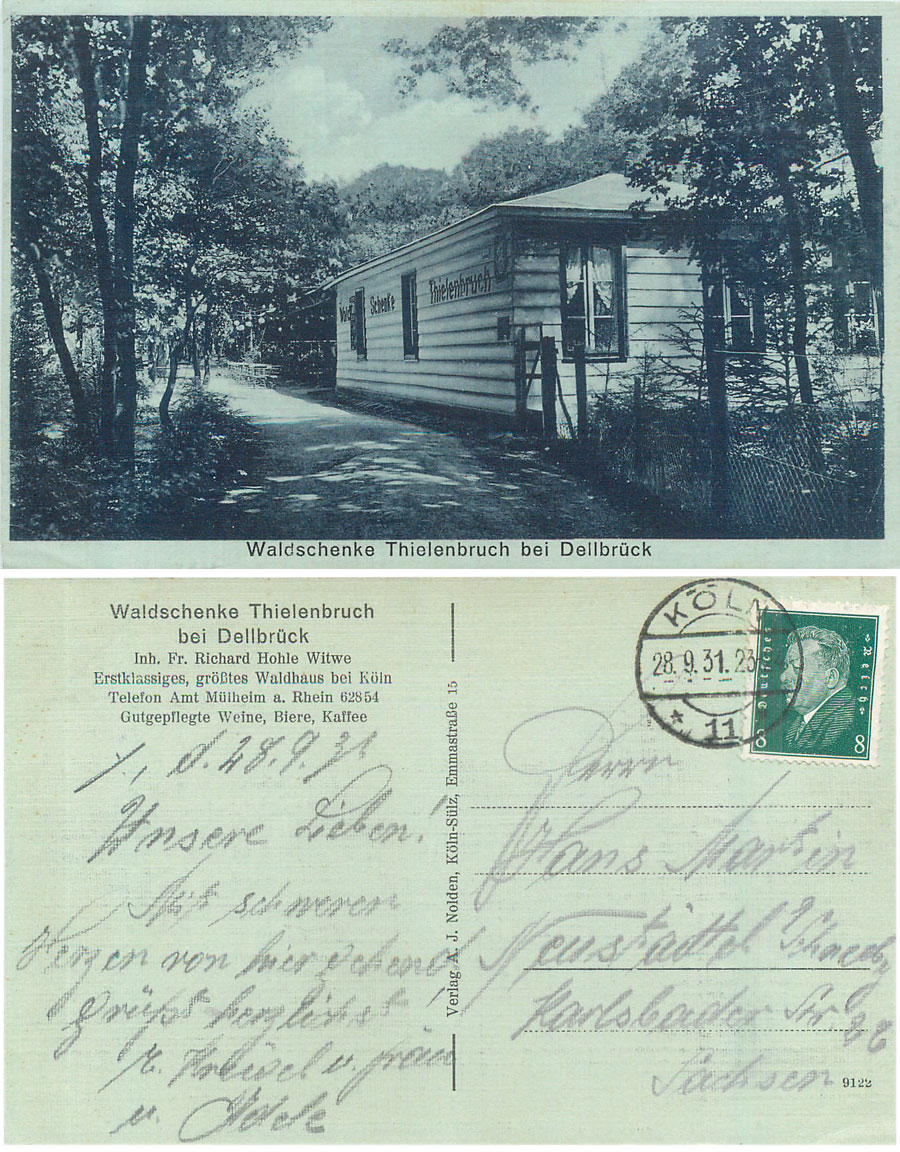 Wald Schenke Thielenbruch
Waldschenke Thielenbruch bei Dellbrück
Waldschenke Thielenbruch
bei Dellbrück
Inh. Fr. Richard Hohle Witwe
Erstklassiges, größtes Waldhaus bei Köln
Telefon Amt Mülheim a. Rhein 62854
Gutgepflegte Weine, Biere, Kaffee
d. 28.9.31
Unsere Lieben!
Mit schweren
Herzen von hier gehend
grüßt herzlichst
u.
Verlag A. J. Nolden, Köln-Sülz, Emmastraße 15
KÖLN
28.9.31.23
* 11
Deutsches Reich
8 8
Herrn
Hans Martin
Neustädtel
Karlsbader Str.
Sachsen
9122